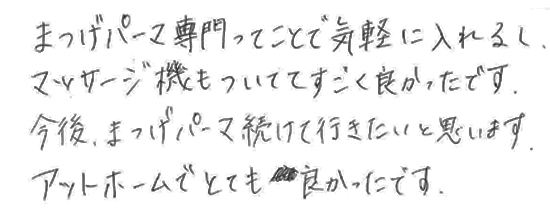 まつげパーマ専門ってことで気軽に入れるし、
マッサージ機もついててすごく良かったです.
今後、まつげパーマ続けて行きたいと思います.
アットホームでとても良かったです.